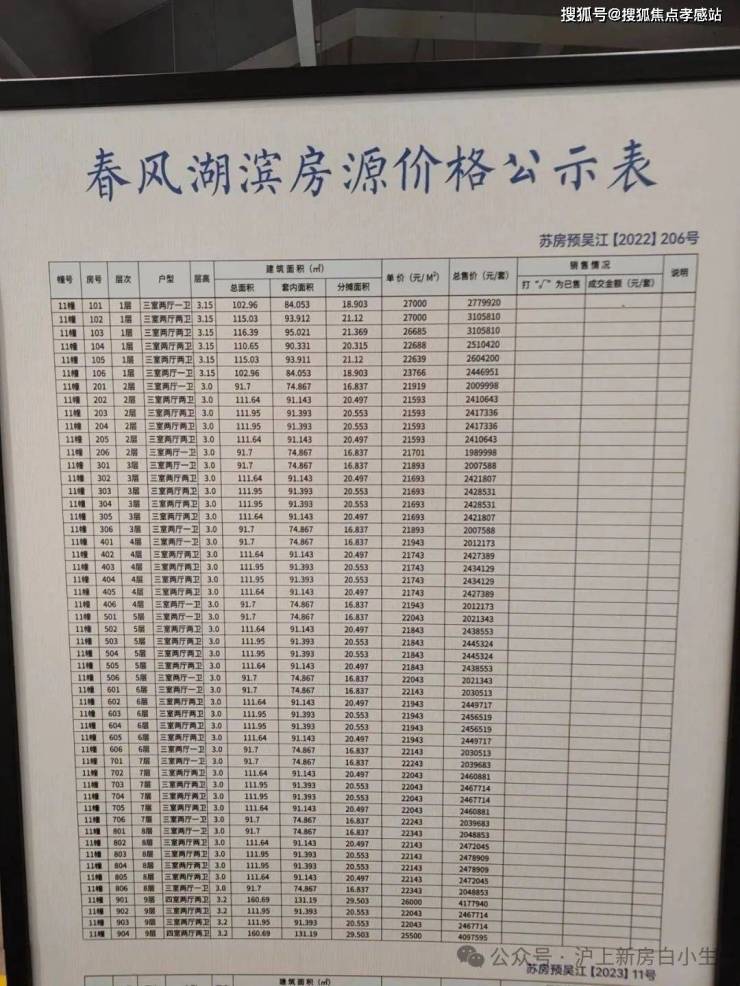 搜狐号@搜狐焦点孝感站
春风湖滨房源价格公示表
苏房预吴江【2022】206号
幢号 房号 层次 户型 层高 建筑面积（㎡） 单价（元/M²） 总售价（元/套） 销售情况 说明
总面积 套内面积 分摊面积 打“√”为已售 成交金额（元/套）
11幢 101 1层 三室两厅一卫 3.15 102.96 84.053 18.903 27000 2779920
11幢 102 1层 三室两厅两卫 3.15 115.03 93.912 21.12 27000 3105810
11幢 103 1层 三室两厅两卫 3.15 116.39 95.021 21.369 26685 3105810
11幢 104 1层 三室两厅两卫 3.15 110.65 90.331 20.315 22688 2510420
11幢 105 1层 三室两厅两卫 3.15 115.03 93.911 21.12 22639 2604200
11幢 106 1层 三室两厅一卫 3.15 102.96 84.053 18.903 23766 2446951
11幢 201 2层 三室两厅一卫 3.0 91.7 74.867 16.837 21919 2009998
11幢 202 2层 三室两厅两卫 3.0 111.64 91.143 20.497 21593 2410643
11幢 203 2层 三室两厅两卫 3.0 111.95 91.393 20.553 21593 2417336
11幢 204 2层 三室两厅两卫 3.0 111.95 91.393 20.553 21593 2417336
11幢 205 2层 三室两厅两卫 3.0 111.64 91.143 20.497 21593 2410643
11幢 206 2层 三室两厅一卫 3.0 91.7 74.867 16.837 21701 1989998
11幢 301 3层 三室两厅一卫 3.0 91.7 74.867 16.837 21893 2007588
11幢 302 3层 三室两厅两卫 3.0 111.64 91.143 20.497 21693 2421807
11幢 303 3层 三室两厅两卫 3.0 111.95 91.393 20.553 21693 2428531
11幢 304 3层 三室两厅两卫 3.0 111.95 91.393 20.553 21693 2428531
11幢 305 3层 三室两厅两卫 3.0 111.64 91.143 20.497 21693 2421807
11幢 306 3层 三室两厅一卫 3.0 91.7 74.867 16.837 21893 2007588
11幢 401 4层 三室两厅一卫 3.0 91.7 74.867 16.837 21943 2012173
11幢 402 4层 三室两厅两卫 3.0 111.64 91.143 20.497 21743 2427389
11幢 403 4层 三室两厅两卫 3.0 111.95 91.393 20.553 21743 2434129
11幢 404 4层 三室两厅两卫 3.0 111.95 91.393 20.553 21743 2434129
11幢 405 4层 三室两厅两卫 3.0 111.64 91.143 20.497 21743 2427389
11幢 406 4层 三室两厅一卫 3.0 91.7 74.867 16.837 21943 2012173
11幢 501 5层 三室两厅一卫 3.0 91.7 74.867 16.837 22043 2021343
11幢 502 5层 三室两厅两卫 3.0 111.64 91.143 20.497 21843 2438553
11幢 503 5层 三室两厅两卫 3.0 111.95 91.393 20.553 21843 2445324
11幢 504 5层 三室两厅两卫 3.0 111.95 91.393 20.553 21843 2445324
11幢 505 5层 三室两厅两卫 3.0 111.64 91.143 20.497 21843 2438553
11幢 506 5层 三室两厅一卫 3.0 91.7 74.867 16.837 22043 2021343
11幢 601 6层 三室两厅一卫 3.0 91.7 74.867 16.837 22143 2030513
11幢 602 6层 三室两厅两卫 3.0 111.64 91.143 20.497 21943 2449717
11幢 603 6层 三室两厅两卫 3.0 111.95 91.393 20.553 21943 2456519
11幢 604 6层 三室两厅两卫 3.0 111.95 91.393 20.553 21943 2456519
11幢 605 6层 三室两厅两卫 3.0 111.64 91.143 20.497 21943 2449717
11幢 606 6层 三室两厅一卫 3.0 91.7 74.867 16.837 22143 2030513
11幢 701 7层 三室两厅一卫 3.0 91.7 74.867 16.837 22243 2039683
11幢 702 7层 三室两厅两卫 3.0 111.64 91.143 20.497 22043 2460881
11幢 703 7层 三室两厅两卫 3.0 111.95 91.393 20.553 22043 2467714
11幢 704 7层 三室两厅两卫 3.0 111.95 91.393 20.553 22043 2467714
11幢 705 7层 三室两厅两卫 3.0 111.64 91.143 20.497 22043 2460881
11幢 706 7层 三室两厅一卫 3.0 91.7 74.867 16.837 22243 2039683
11幢 801 8层 三室两厅一卫 3.0 91.7 74.867 16.837 22343 2048853
11幢 802 8层 三室两厅两卫 3.0 111.64 91.143 20.497 22143 2472045
11幢 803 8层 三室两厅两卫 3.0 111.95 91.393 20.553 22143 2478909
11幢 804 8层 三室两厅两卫 3.0 111.95 91.393 20.553 22143 2478909
11幢 805 8层 三室两厅两卫 3.0 111.64 91.143 20.497 22143 2472045
11幢 806 8层 三室两厅一卫 3.0 91.7 74.867 16.837 22343 2048853
11幢 901 9层 四室两厅两卫 3.2 160.69 131.19 29.503 26000 4177940
11幢 902 9层 三室两厅两卫 3.2 111.95 91.393 20.553 22043 2467714
11幢 903 9层 三室两厅两卫 3.2 111.95 91.393 20.553 22043 2467714
11幢 904 9层 四室两厅两卫 3.2 160.69 131.19 29.503 25500 4097595
公众号·沪上新房白小生
苏房预吴江【2023】11号
建筑面积（㎡）